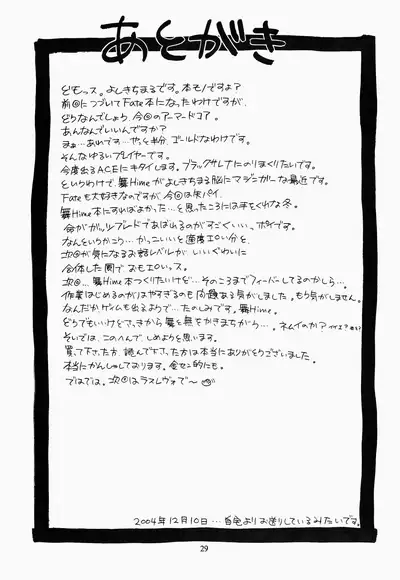 あとがき
どもっス。よしきちまるです。本モノですよ?
前回につづいてFate本になったわけですが、
どうなんでしょう、今回のアーマードコア。
あんなんでいいんですか?
まぁ…あれです…やっと半分、ゴールドなわけです。
そんなゆるいプレイヤーです。
今度出るACEにキタイします。ブラックサレナにのりまくりたいです。
というわけで、舞Himeがよしきちまる脳にマジニガルーな最近です。
Fateも大好きなのですが、今回は失パイ。
舞Hime本にすればよかった…と思ったころには手もくれな冬。
命ががッツブレードであばれるのがすごくいい、ポイです。
なんというかこう…かっこいいと適度エロい分を、
次回が気になるお話レベルがいいぐわいに
合体した図で、おもエロいッス。
次回…舞Hime本つくりたいけど…そのころまでフィーバーしてるのかしら…
作業はじめるのがはやすぎるのも問題ある気がしました。もう気がしません。
なんだかゲームも出るようで…たのしみです。舞Hime。
どうでもいいけどさ、さっきから舞を無をかきまちがう…。ネムイのか?イイエ?
そいでは、このへんで、しめようと思います。
買って下さった方、読んで下さった方は本当にありがとうございました。
本当にかんしゃしております。金セン的にも。
ではでは。次回はラスレヴォで〜
2004年12月10日…自宅よりお送りしているみたいです。
29